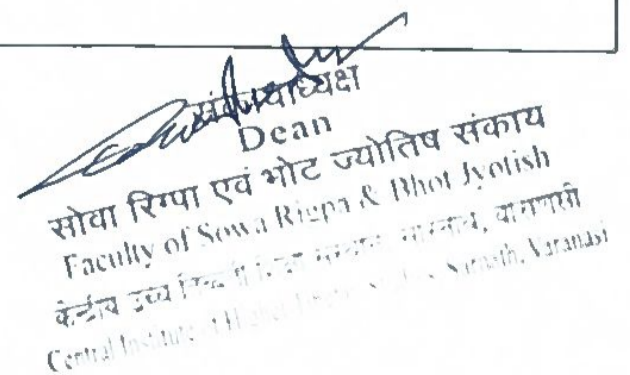 संकायाध्यक्ष
Dean
सोवा रिग्पा एवं भोट ज्योतिष संकाय
Faculty of Sowa Rigpa & Bhot Jyotish
केन्द्रीय उच्च तिब्बती शिक्षा संस्थान, सारनाथ, वाराणसी
Central Institute of Higher Sarnath, Varanasi